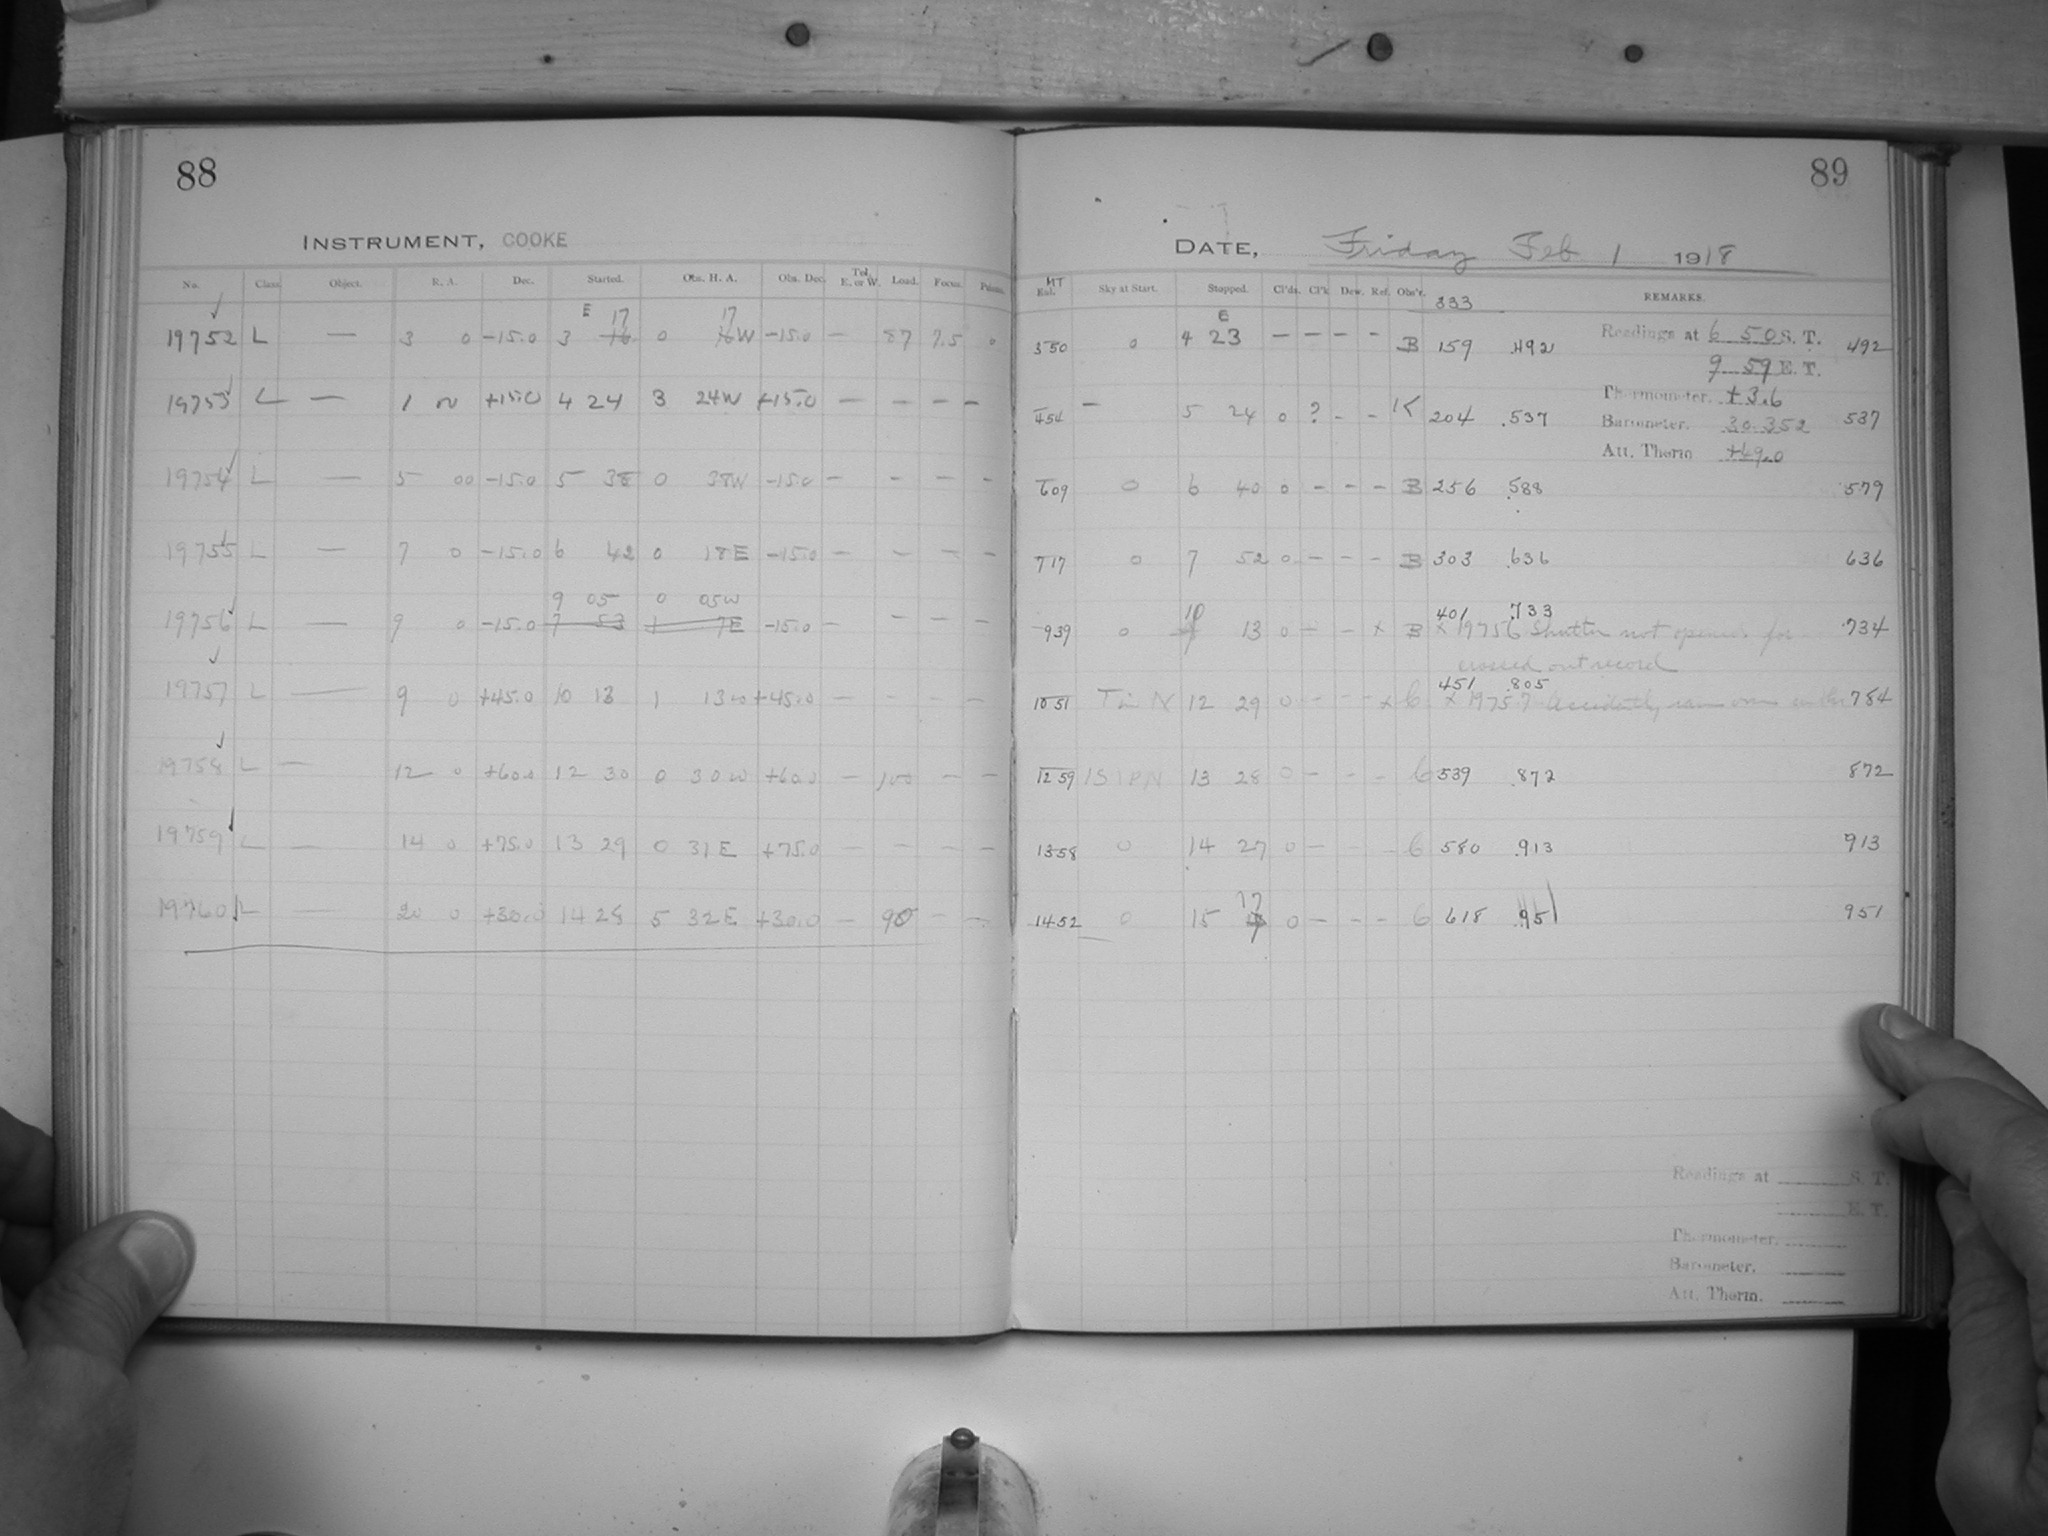 88
INSTRUMENT, COOKE
No. Class Object. R. A. Dec. Started. Obs. H. A. Obs. Dec. Tel. E. or W. Load. Focus.
E 17 17
19752 L — 3 0 -15.0 3 16 0 16W -15.0 — 87 7.5 0
19753 L — 1 +15.0 4 24 3 24W +15.0 — — — —
19754 L — 5 00 -15.0 5 38 0 38W -15.0 — — — —
19755 L — 7 0 -15.0 6 42 0 18E -15.0 — — — —
9 05 0 05W
19756 L — 9 0 -15.0 7 53 1 7E -15.0 — — — —
19757 L — 9 0 +45.0 10 13 1 13W +45.0 — — — —
19758 L — 12 0 +60.0 12 30 0 30W +60.0 — 100 — —
19759 L — 14 0 +75.0 13 29 0 31E +75.0 — — — —
19760 L — 20 0 +30.0 14 28 5 32E +30.0 — 90 — —
89
DATE, Friday Feb 1 1918
MT Sky at Start. Stopped. Cl'ds. Cl'k Dew. Ref. Obs'r. 333 REMARKS.
E
350 0 4 23 — — — — B 159 .492 Readings at 6 50 S. T. 492
9 59 E. T.
Thermometer. +3.6
454 — 5 24 0 ? - - K 204 .537 Barometer. 30.352 537
Att. Therm +49.0
609 0 6 40 0 - - - B 256 .588 579
717 0 7 52 0 - - - B 303 .636 636
10 401 .733
939 0 13 0 - - x B x 19756 Shutter not opened for 734
crossed out record
451 .805
1051 N 12 29 0 - - - x 6 x 19757 Accidently ran over 784
1259 13 28 0 - - - 6 539 .872 872
1358 0 14 27 0 - - - 6 580 .913 913
17
1452 0 15 0 - - - 6 618 .951 951
Readings at S. T.
E. T.
Thermometer.
Barometer.
Att. Therm.